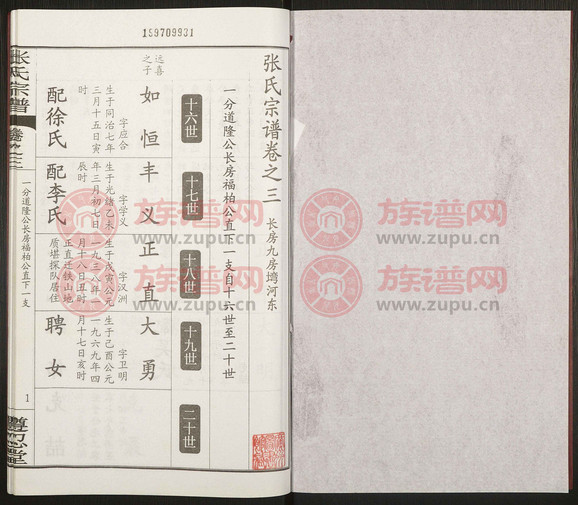 159709931
张氏宗谱卷之三
长房九房塆河东
一分道隆公长房福柏公直下一支自十六世至二十世
十六世
十七世
十八世
十九世
二十世
远喜之子
如恒
字应合
生于同治七年
三月十五日寅
时
配徐氏
丰义
字学义
生于光绪乙未
年三月初七日
辰时
配李氏
正直
字汉洲
生于戊寅公元
一九三八年一
月十八日丑时
正直迁铁山地
质堪探队居住
大勇
字卫明
生于己酉公元
一九六九年四
月十七日亥时
聘女
张氏宗谱
卷之三
一分道隆公长房福柏公直下一支
1
族谱网
www.zupu.cn
族谱网
www.zupu.cn
族谱网
www.zupu.cn
族谱网
www.zupu.cn